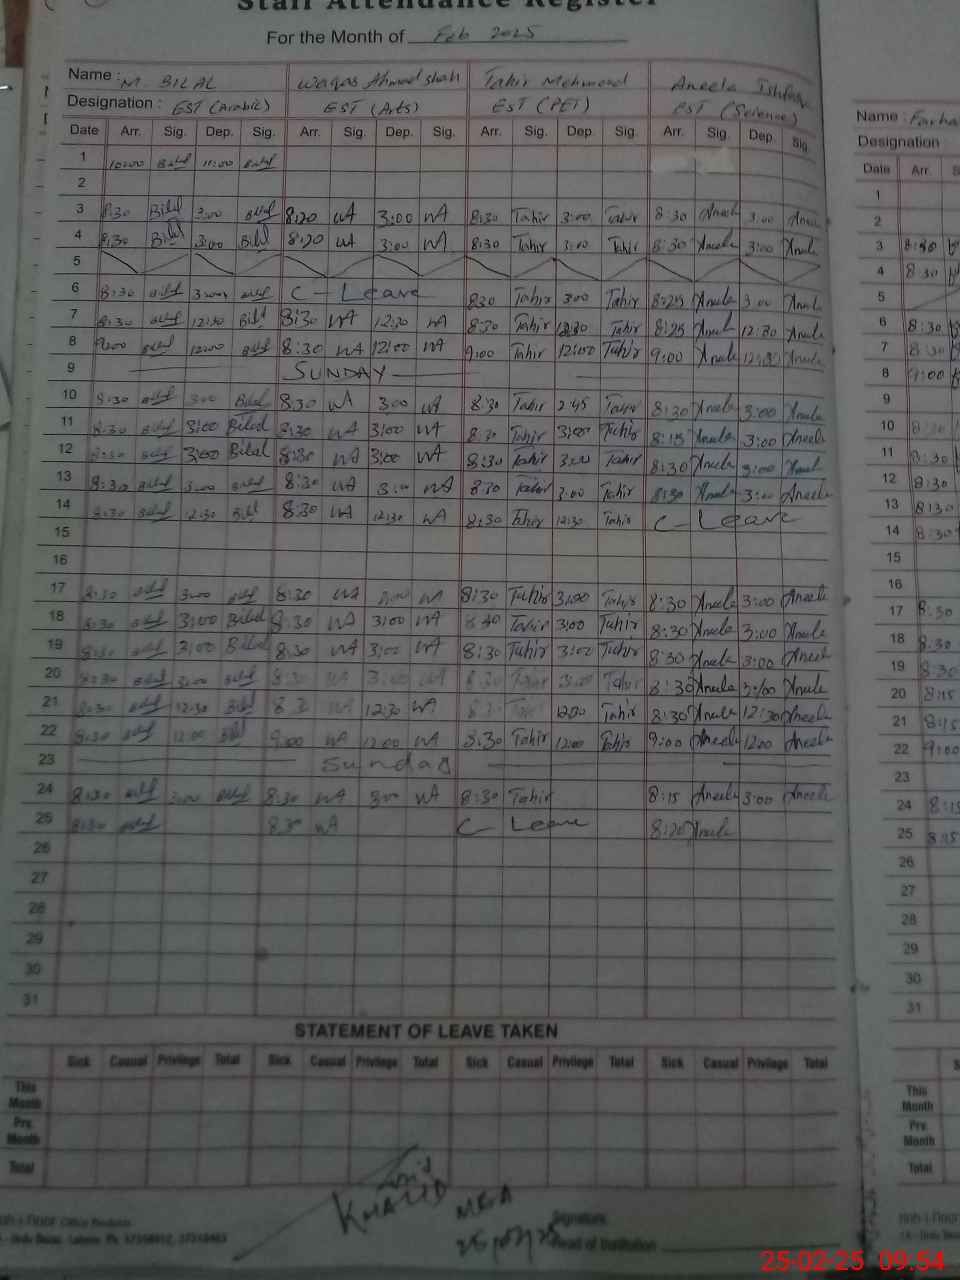 Staff Attendance Register
For the Month of Feb 2025
Name : M. BILAL Waqas Ahmad shah Tahir Mehmood Aneela Ishfaq
Designation : EST (Arabic) EST (Arts) EST (PET) EST (Science)
Date Arr. Sig. Dep. Sig. Arr. Sig. Dep. Sig. Arr. Sig. Dep. Sig. Arr. Sig. Dep. Sig.
1 10:00 Bilal 11:00 Bilal
2
3 8:30 Bilal 3:00 Bilal 8:20 WA 3:00 WA 8:30 Tahir 3:00 Tahir 8:30 Aneela 3:00 Aneela
4 8:30 Bilal 3:00 Bilal 8:20 WA 3:00 WA 8:30 Tahir 3:00 Tahir 8:30 Aneela 3:00 Aneela
5
6 8:30 Bilal 3:00 Bilal C - Leave 8:30 Tahir 3:00 Tahir 8:25 Aneela 3:00 Aneela
7 8:30 Bilal 12:30 Bilal 8:30 WA 12:30 WA 8:30 Tahir 12:30 Tahir 8:25 Aneela 12:30 Aneela
8 9:00 Bilal 12:00 Bilal 8:30 WA 12:00 WA 9:00 Tahir 12:00 Tahir 9:00 Aneela Aneela
9 SUNDAY
10 8:30 Bilal 3:00 Bilal 8:30 WA 3:00 WA 8:30 Tahir 2:45 Tahir 8:30 Aneela 3:00 Aneela
11 8:30 Bilal 3:00 Bilal 8:30 WA 3:00 WA 8:30 Tahir 3:00 Tahir 8:15 Aneela 3:00 Aneela
12 8:30 Bilal 3:00 Bilal 8:30 WA 3:00 WA 8:30 Tahir 3:00 Tahir 8:30 Aneela 3:00 Aneela
13 8:30 Bilal 3:00 Bilal 8:30 WA 3:00 WA 8:30 Tahir 3:00 Tahir 8:30 Aneela 3:00 Aneela
14 8:30 Bilal 12:30 Bilal 8:30 WA 12:30 WA 8:30 Tahir 12:30 Tahir C - Leave
15
16
17 8:30 Bilal 3:00 Bilal 8:30 WA 3:00 WA 8:30 Tahir 3:00 Tahir 8:30 Aneela 3:00 Aneela
18 8:30 Bilal 3:00 Bilal 8:30 WA 3:00 WA 8:30 Tahir 3:00 Tahir 8:30 Aneela 3:00 Aneela
19 8:30 Bilal 3:00 Bilal 8:30 WA 3:00 WA 8:30 Tahir 3:00 Tahir 8:30 Aneela 3:00 Aneela
20 8:30 Bilal 3:00 Bilal 8:30 WA 3:00 WA 8:30 Tahir 3:00 Tahir 8:30 Aneela 3:00 Aneela
21 8:30 Bilal 12:30 Bilal 8:30 WA 12:30 WA Tahir Tahir 8:30 Aneela 12:30 Aneela
22 8:30 Bilal 12:00 Bilal 9:00 WA 12:00 WA 8:30 Tahir 12:00 Tahir 9:00 Aneela 12:00 Aneela
23 Sunday
24 8:30 Bilal 3:00 Bilal 8:30 WA 3:00 WA 8:30 Tahir 8:15 Aneela 3:00 Aneela
25 8:30 Bilal 8:30 WA C Leave 8:20 Aneela
26
27
28
29
30
31
STATEMENT OF LEAVE TAKEN
Sick Casual Privilege Total Sick Casual Privilege Total Sick Casual Privilege Total Sick Casual Privilege Total
This Month
Prv. Month
Total
KHALID MEA
25/02/25
Signature
Head of Institution
Office Products
Name : Farha
Designation
Date Arr. S
1
2
3 8:30
4 8:30
5
6 8:30
7 8:30
8 9:00
9
10 8:30
11 8:30
12 8:30
13 8:30
14 8:30
15
16
17 8:30
18 8:30
19 8:30
20 8:15
21 8:45
22 9:00
23
24 8:15
25 8:15
26
27
28
29
30
31
This Month
Prv. Month
Total
25-02-25 09:54